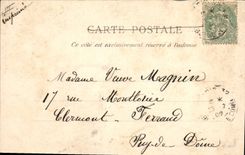 CARTE POSTALE
Ce côté est exclusivement réservé à l'adresse
Madame Veuve Magnin
17 rue Montlosier
Clermont-Ferrand
Puy-de-Dôme